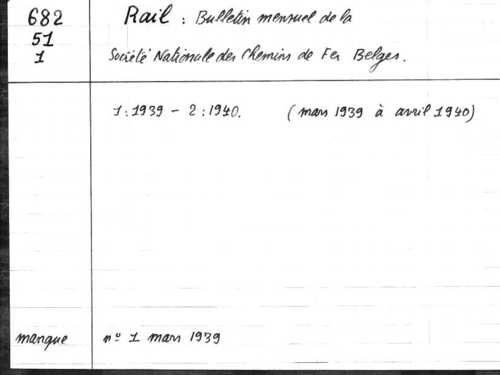 682 Rail : Bulletin mensuel de la
51
1 Société Nationale des Chemins de Fer Belges.
1:1939 - 2:1940. (mars 1939 à avril 1940)
manque n° 1 mars 1939